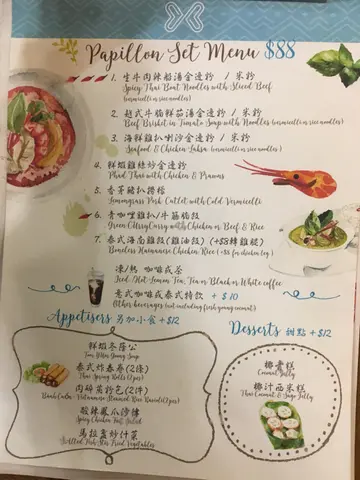 Papillon Set Menu $88
1. 生牛肉辣船湯金邊粉 / 米粉
Spicy Thai Boat Noodles with Sliced Beef
(vermicelli or rice noodles)
2. 越式牛腩鮮茄湯金邊粉 / 米粉
Beef Brisket in Tomato Soup with Noodles (vermicelli or rice noodles)
3. 海鮮雞扒喇沙金邊粉 / 米粉
Seafood & Chicken Laksa (vermicelli or rice noodles)
4. 鮮蝦雞絲炒金邊粉
Phad Thai with Chicken & Prawns
5. 香茅豬扒撈檬
Lemongrass Pork Cutlet with Cold Vermicelli
6. 青咖喱雞扒/牛腩飯
Green Curry with Chicken or Beef & Rice
7. 泰式海南雞飯(雞油飯) (+$8轉雞髀)
Boneless Hainanese Chicken Rice (+$8 for chicken leg)
凍/熱 咖啡或茶
Iced/Hot Lemon Tea, Tea or Black or White coffee
意式咖啡或泰式特飲 + $10
Other beverages (not including fresh young coconut)
Appetisers 另加小食 + $12
鮮蝦冬蔭公
Tom Yum Goong Soup
泰式炸春卷(2條)
Thai Spring Rolls (2pcs)
肉碎蒸粉包(2件)
Banh Cuon - Vietnamese Steamed Rice Ravioli (2pcs)
酸辣鳳爪沙律
Spicy Chicken Feet Salad
馬拉盞炒什菜
Stir Fried Vegetables
Desserts 甜點 +$12
椰青糕
Coconut Jelly
椰汁西米糕
Thai Coconut & Sago Jelly